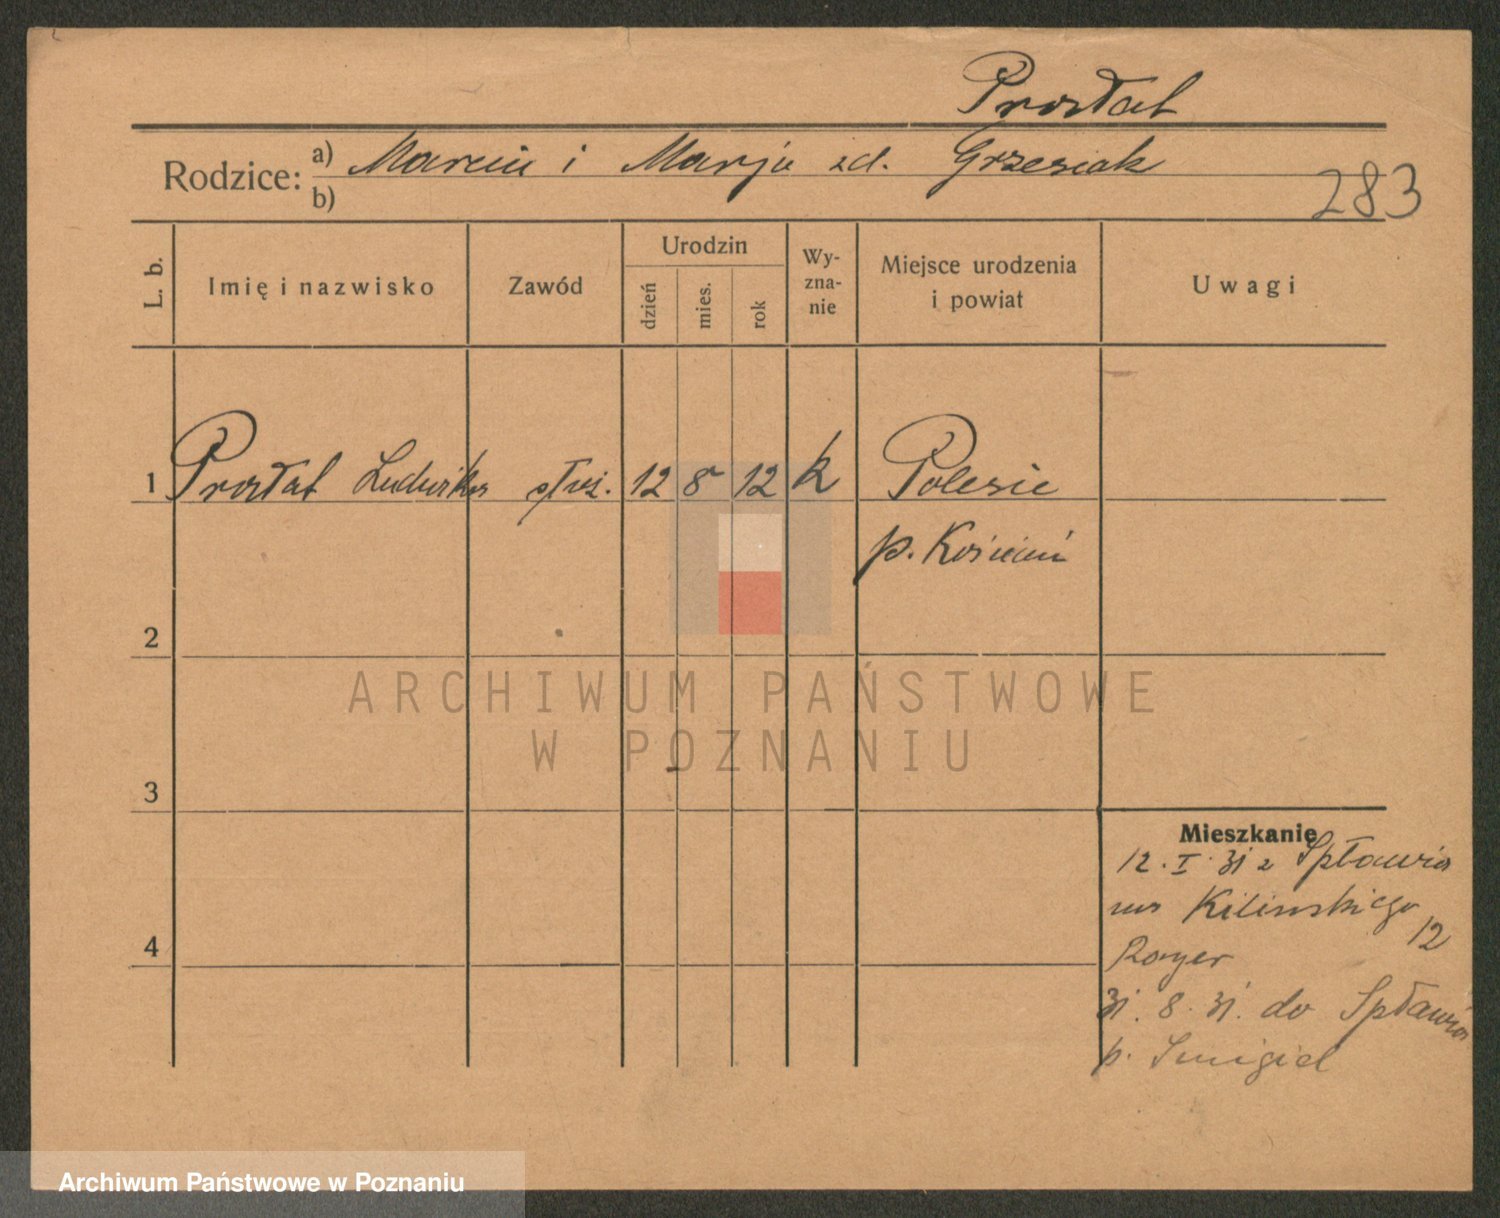 Prostat
Rodzice: a) Marcin i Marja zd. Grzesiak
b)
283
L. b. Imię i nazwisko Zawód Urodzin dzień mies. rok Wyznanie Miejsce urodzenia i powiat Uwagi
1 Prostat Ludwika służ. 12 8 12 k Polesie
p. Kościań
2
3
4
Mieszkanie
12. I. 31 z Spławia
na Kilinskiego
12
31. 8. 31. do Spławia
p. Smigiel
ARCHIWUM PAŃSTWOWE
W POZNANIU
Archiwum Państwowe w Poznaniu